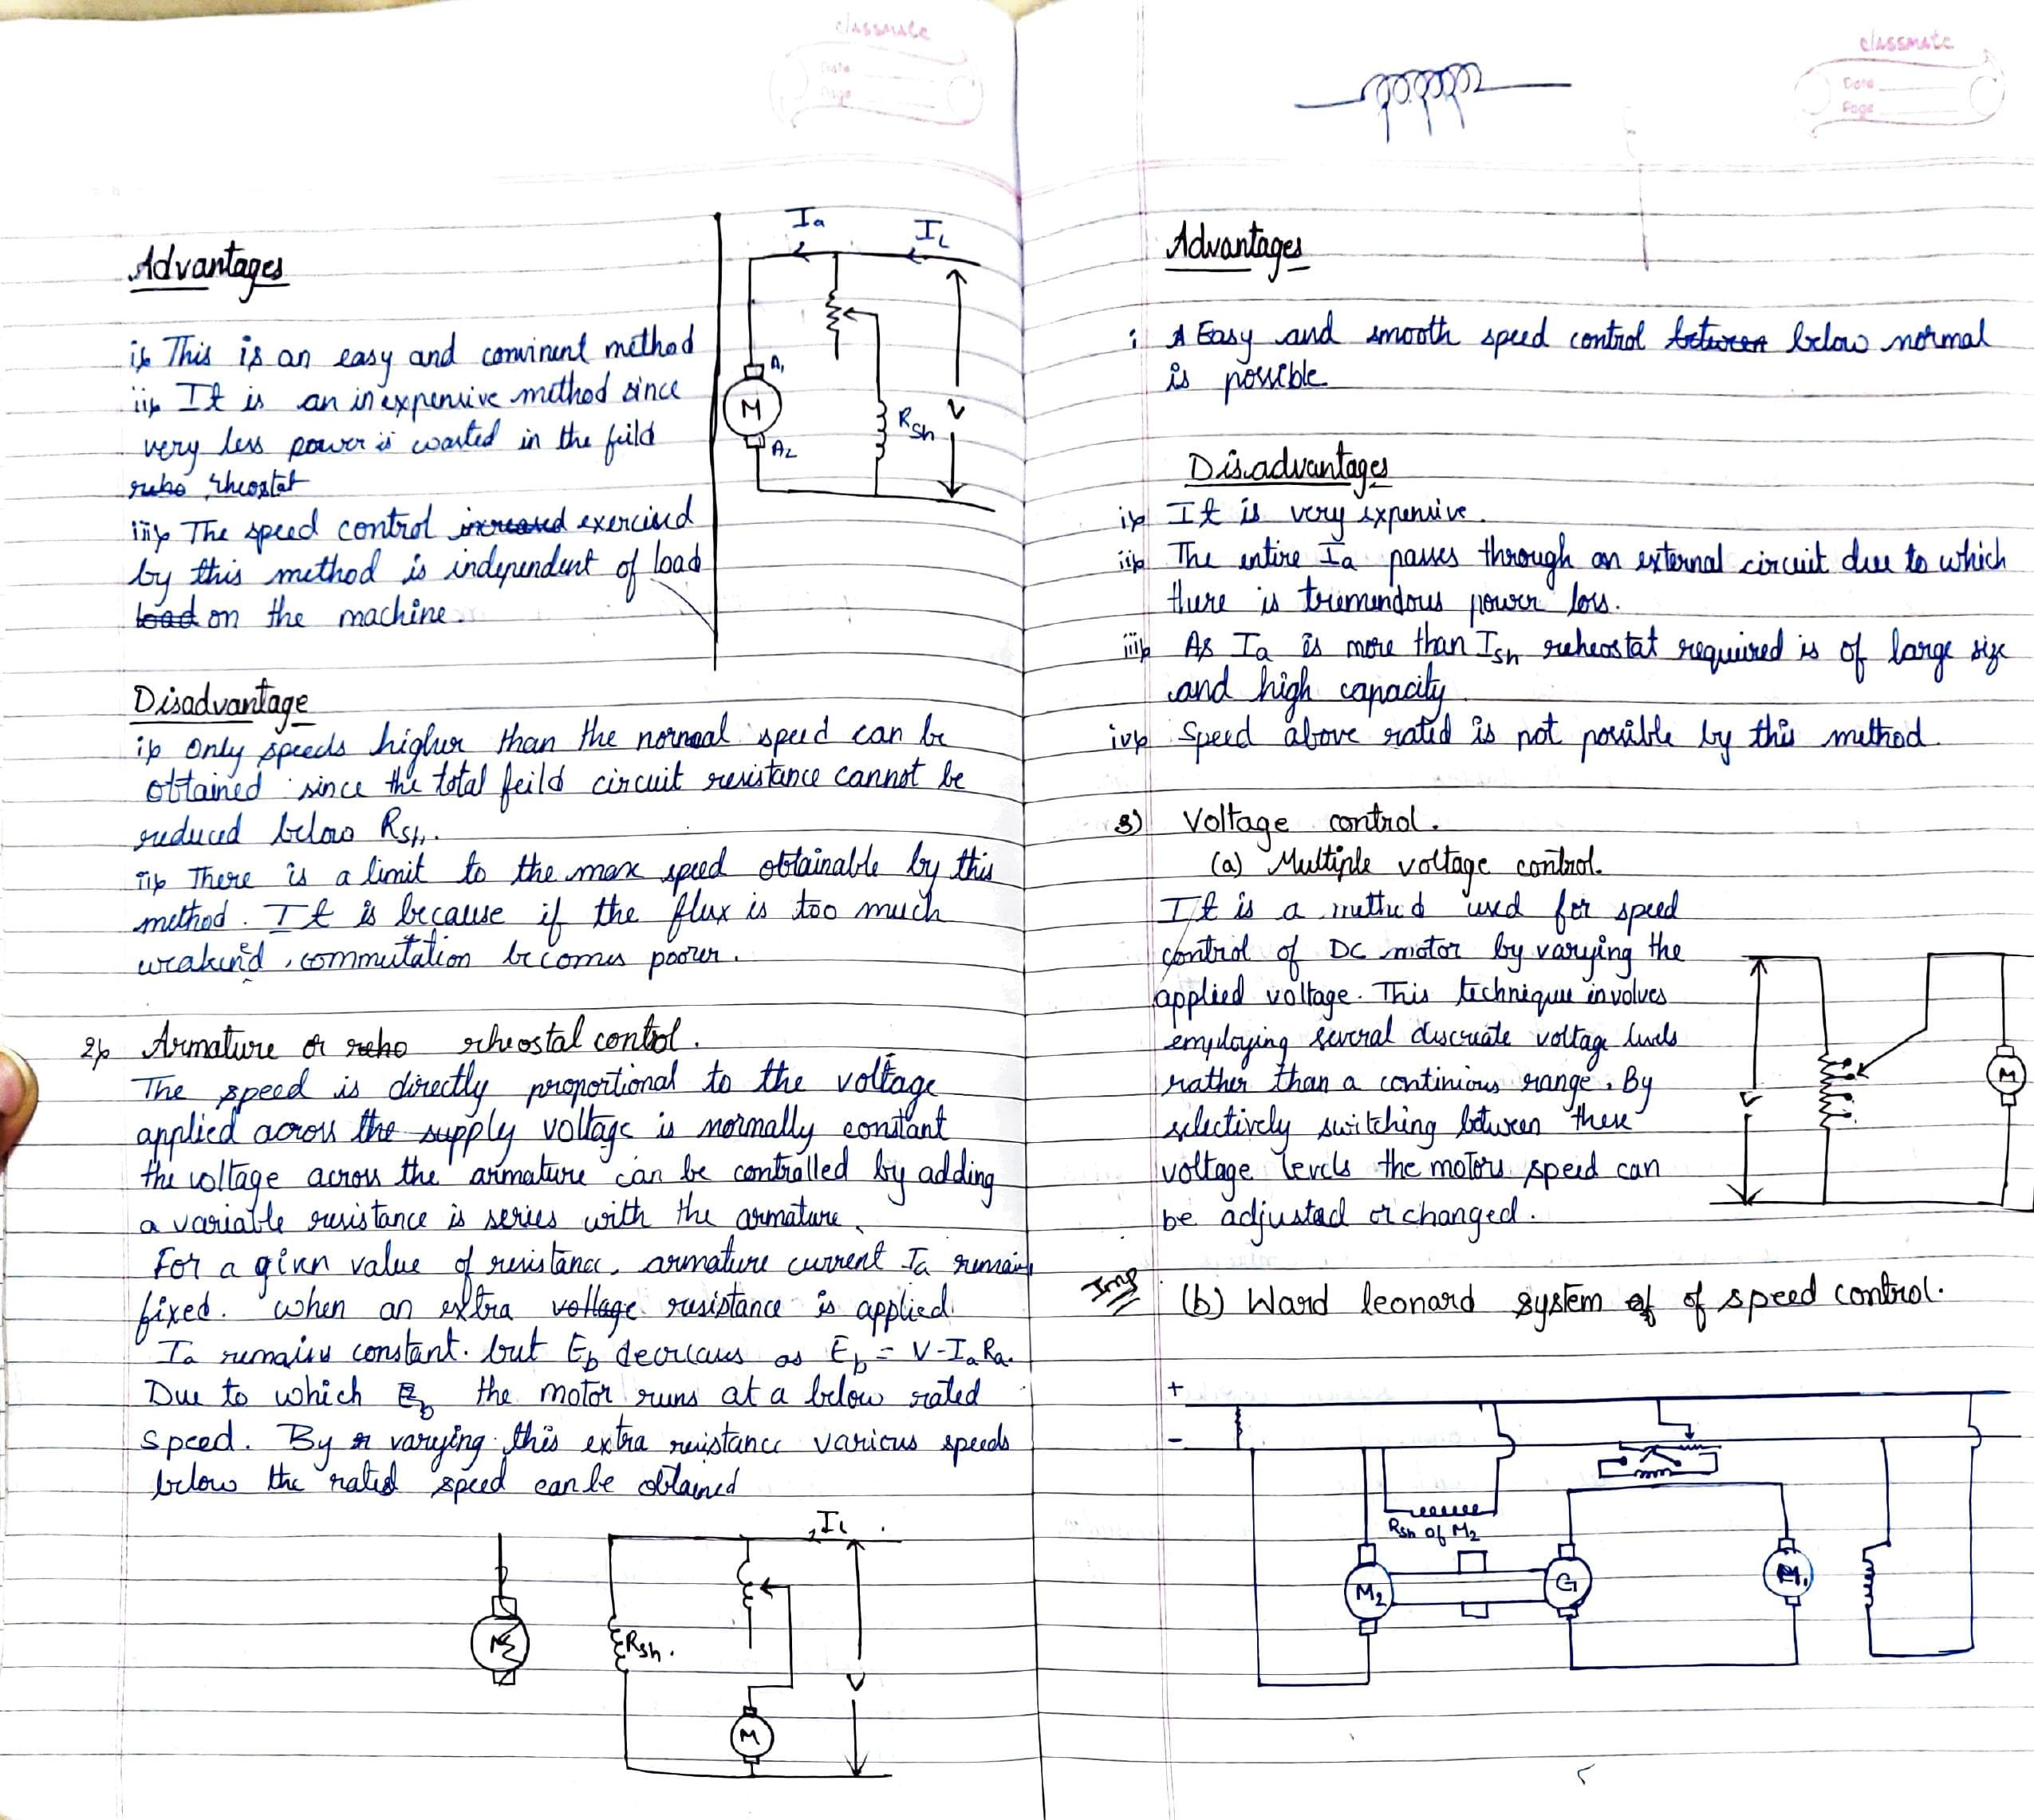 classmate
Date
Page
Advantages
i) This is an easy and convinent method
ii) It is an inexpensive method since
very less power is wasted in the feild
reho rheostat
iii) The speed control increased exercised
by this method is independent of load
load on the machine.
Ia
IL
A1
M
A2
Rsh
V
Disadvantage
i) Only speeds higher than the normal speed can be
obtained since the total feild circuit resistance cannot be
reduced below Rsh.
ii) There is a limit to the max speed obtainable by this
method. It is because if the flux is too much
weakend, commutation becomes poorer.
2) Armature or reho rheostal control.
The speed is directly proportional to the voltage
applied across the supply voltage is normally constant
the voltage across the armature can be controlled by adding
a variable resistance is series with the armature.
For a given value of resistance, armature current Ia remains
fixed. when an extra voltage resistance is applied
Ia remains constant. but Eb decreases as Eb = V-IaRa.
Due to which Eb the motor runs at a below rated
speed. By varying this extra resistance various speeds
below the rated speed can be obtained
IL
M
Rsh.
V
M
classmate
Date
Page
Advantages
i Easy and smooth speed control between below normal
is possible
Disadvantages
i) It is very expensive.
ii) The entire Ia passes through an external circuit due to which
there is tremendous power loss.
iii) As Ia is more than Ish reheostat required is of large size
and high capacity
iv) Speed above rated is not possible by this method.
3) Voltage control.
(a) Multiple voltage control.
It is a method used for speed
control of DC motor by varying the
applied voltage. This technique involves
employing several discreate voltage levels
rather than a continious range. By
selectively switching between these
voltage levels the motors speed can
be adjusted or changed.
V
M
Imp (b) Ward leonard system of of speed control.
+
-
Rsh of M2
M2
G
M1